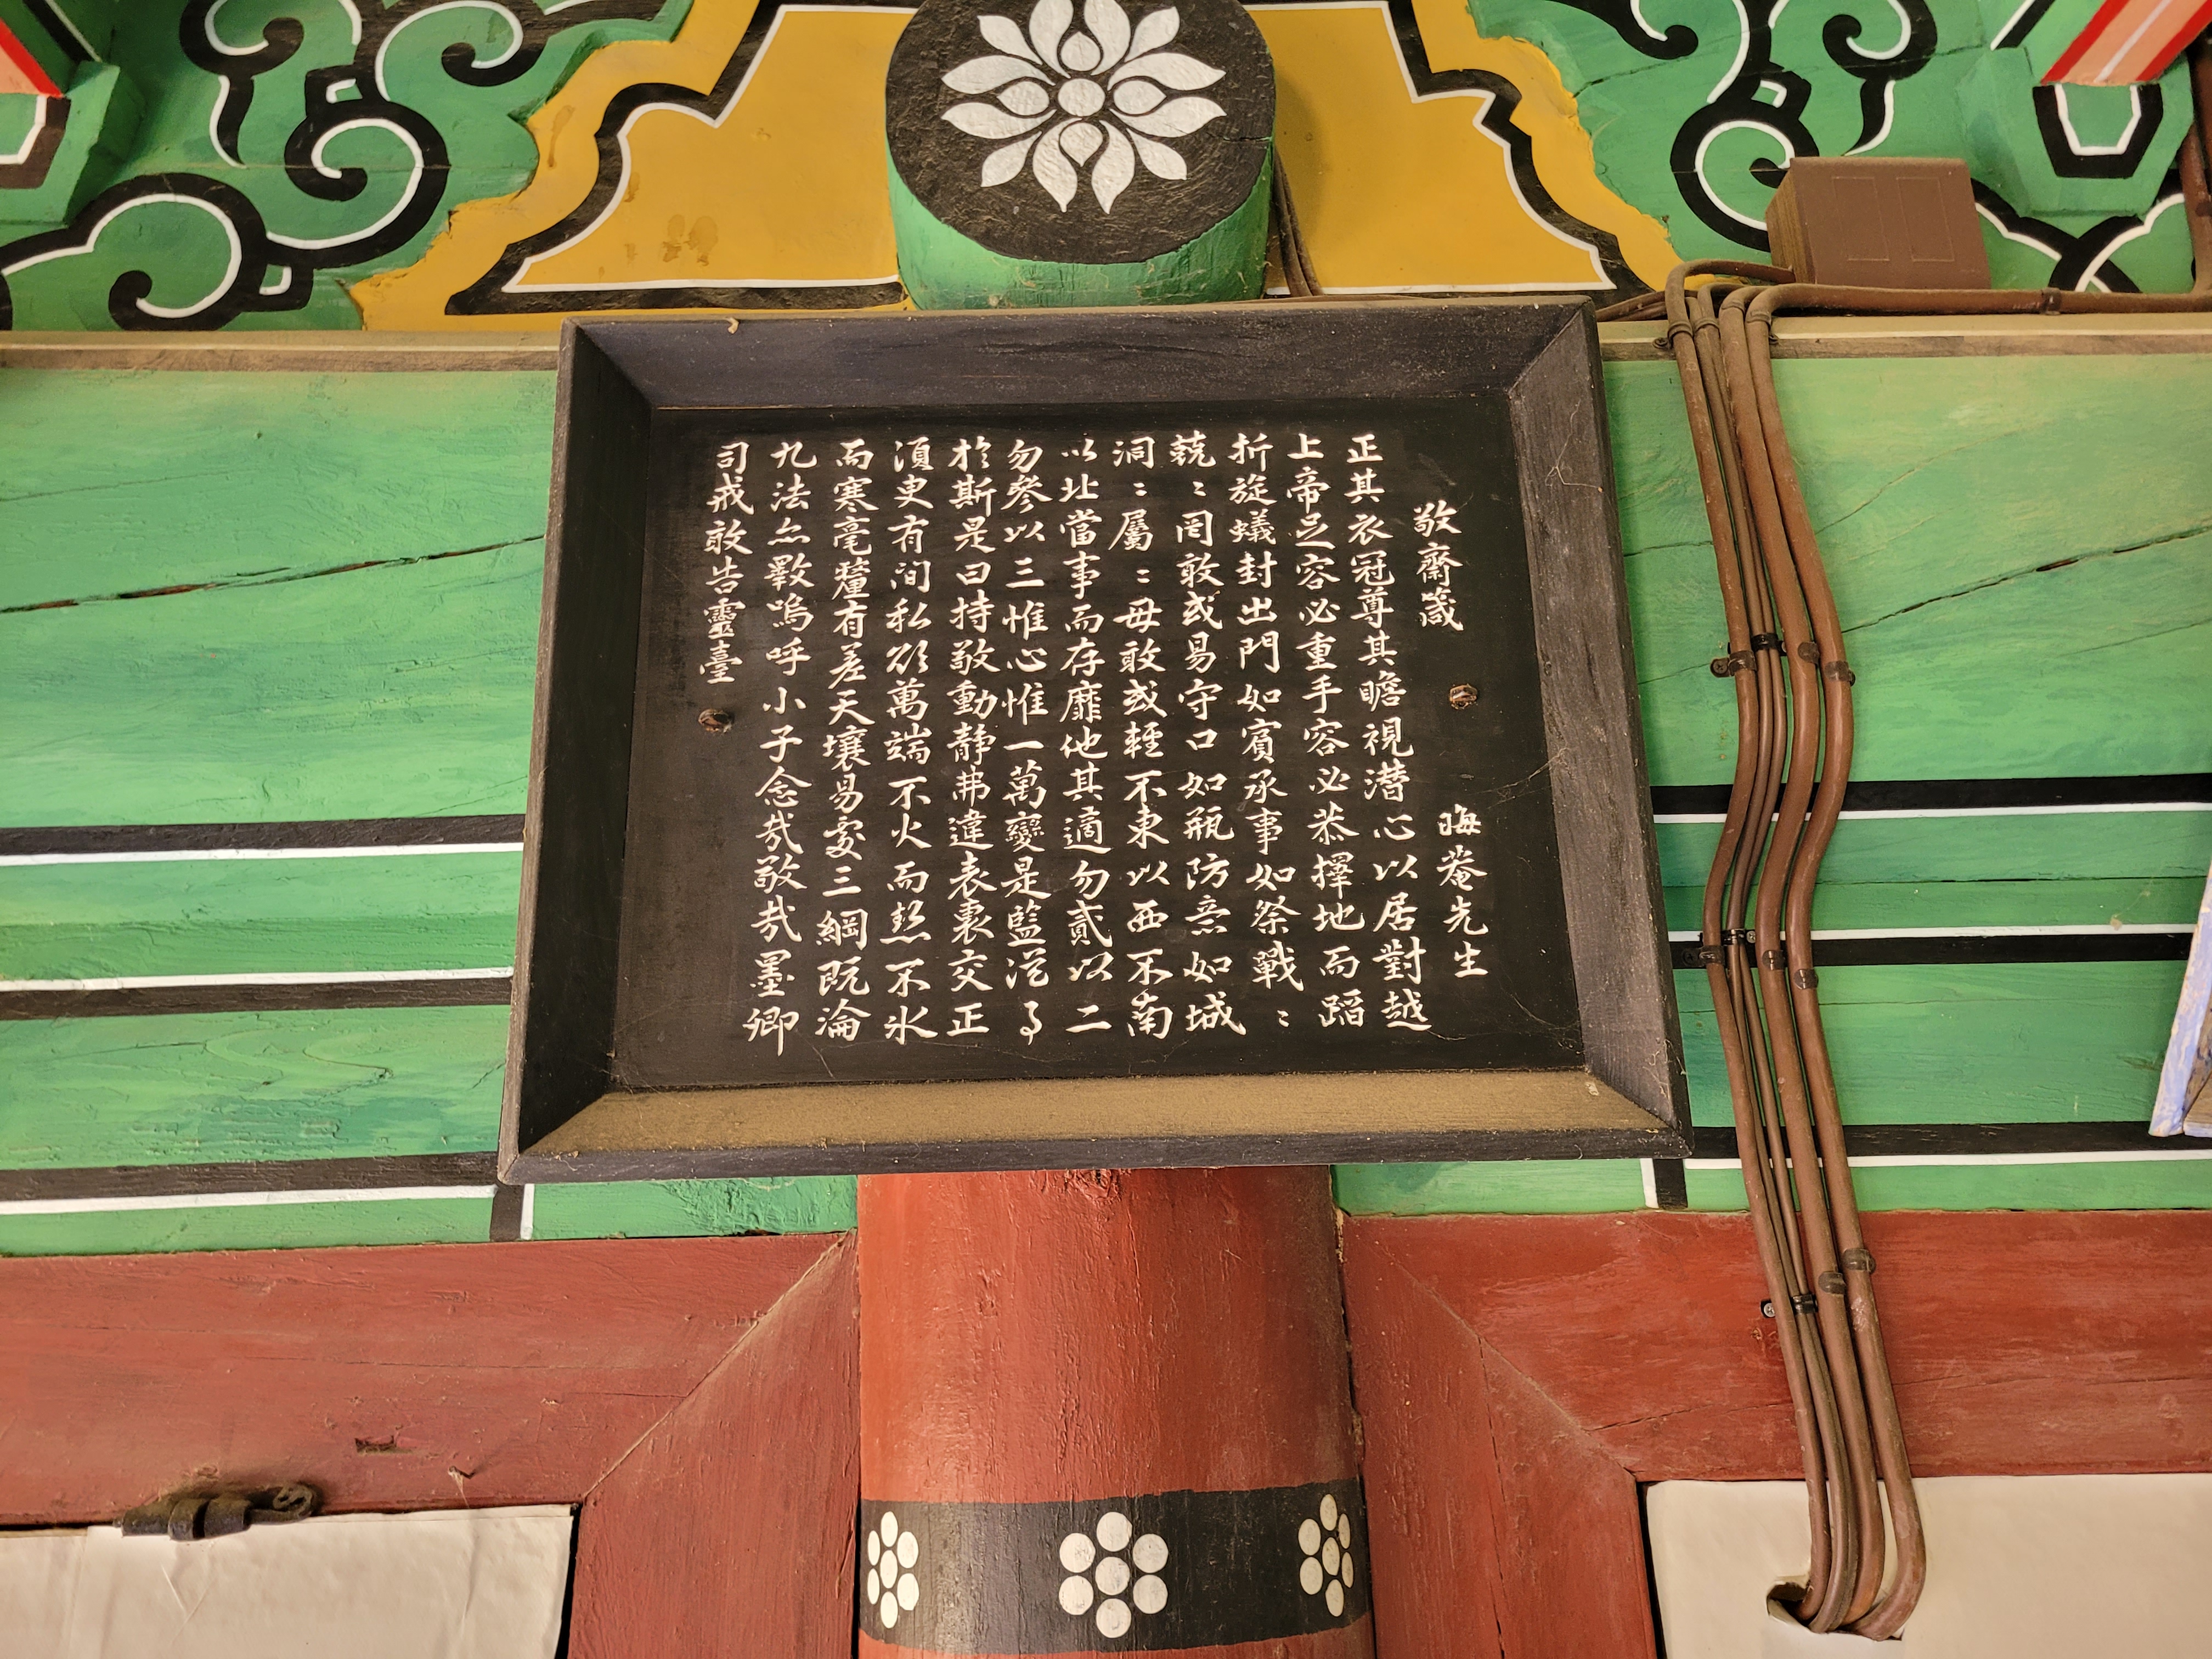 敬齋箴 晦菴先生
正其衣冠尊其瞻視潜心以居對越
上帝足容必重手容必恭擇地而蹈
折旋蟻封出門如賓承事如祭戰〻
兢〻罔敢或易守口如瓶防意如城
洞〻屬〻毋敢或輕不東以西不南
以北當事而存靡他其適勿貳以二
勿參以三惟心惟一萬變是監從事
於斯是曰持敬動静弗違表裏交正
須臾有间私欲萬端不火而热不氷
而寒毫釐有差天壤易處三綱既淪
九法亦斁嗚呼小子念㢤敬㢤墨卿
司戒敢告靈臺